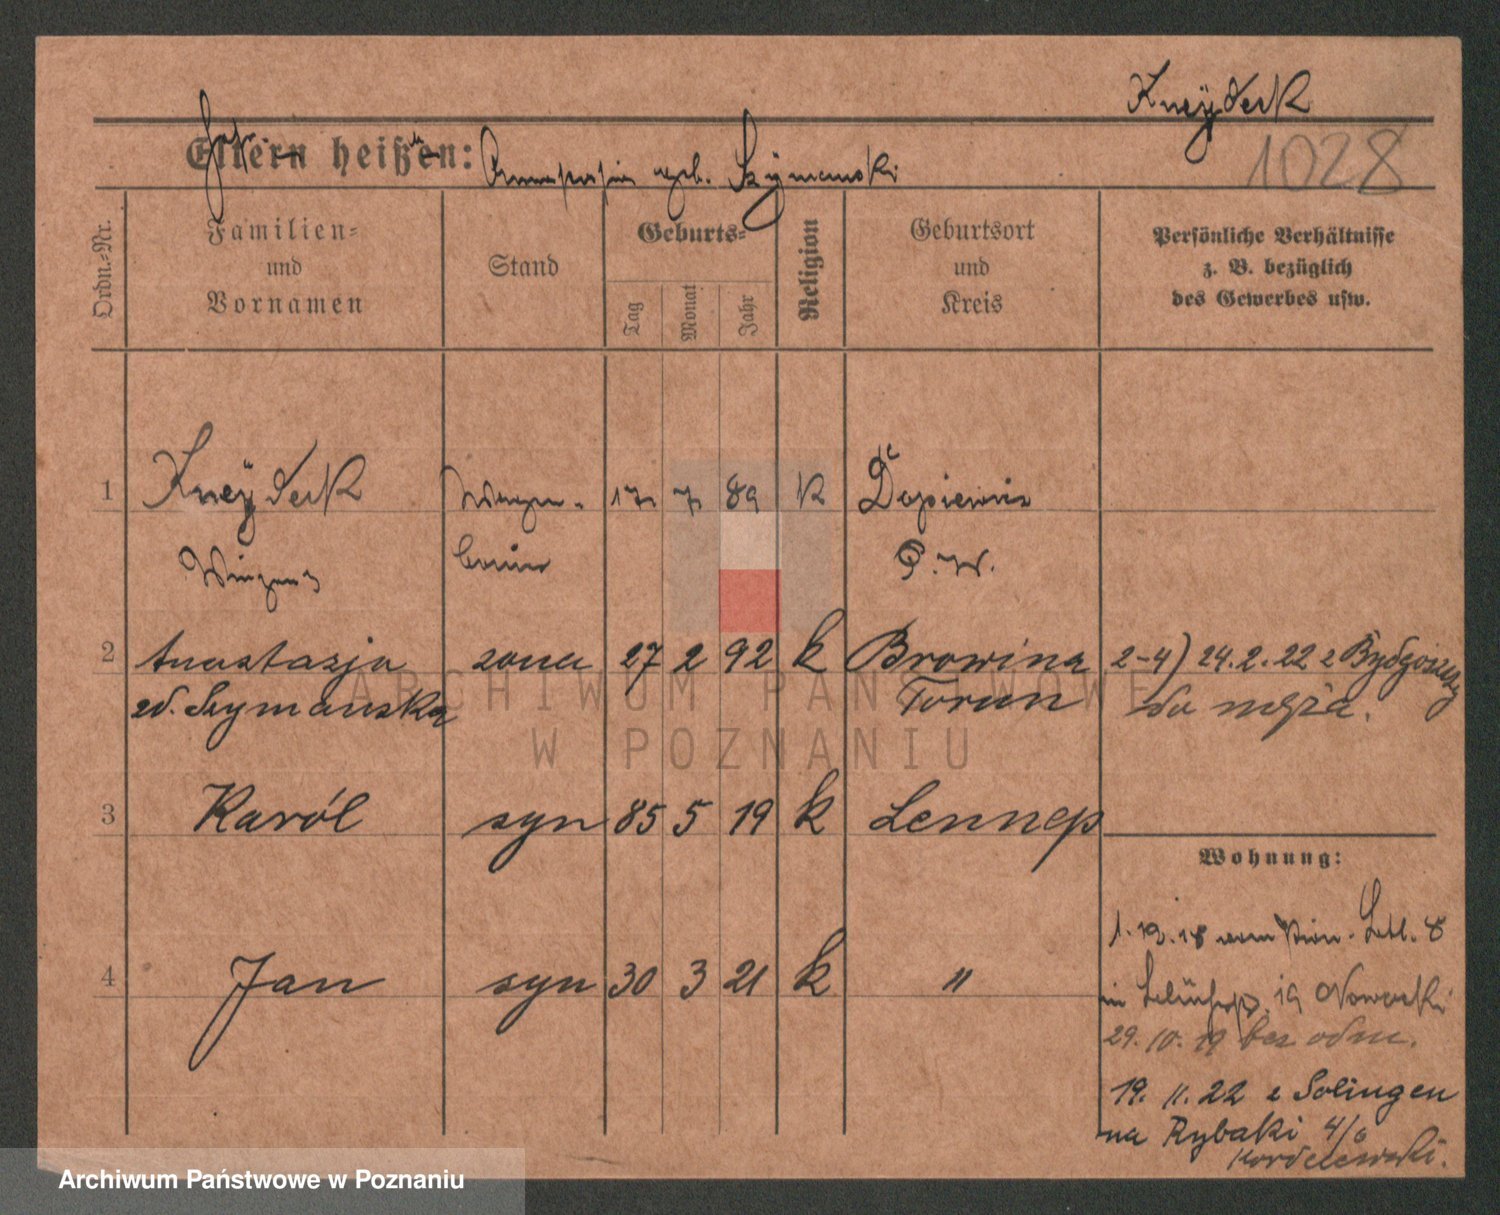 Kneÿderk
1028
Eltern heißen:
geb. Szÿmanski
Ordn.-Nr.
Familien-
und
Vornamen
Stand
Geburts-
Tag
Monat
Jahr
Religion
Geburtsort
und
Kreis
Persönliche Verhältnisse
z. B. bezüglich
des Gewerbes usw.
1 Kneÿderk 17 7 89 K Dopiewiec
P. W.
2 Anastazja zona 27 2 92 k Browina 2-4) 24.2.22 z Bydgoszczy
zd. Szymanska Torun do męża.
3 Karól syn 85 5 19 k Lennep
Wohnung:
8
4 Jan syn 30 3 21 k "
in 19 Nowacki
29.10.19 bez odm.
19. 11. 22 z Solingen
na Rybaki 4/6
ARCHIWUM PAŃSTWOWE
W POZNANIU
Archiwum Państwowe w Poznaniu